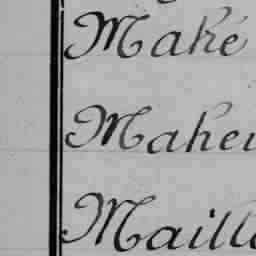 Maké
Maheu
Maill